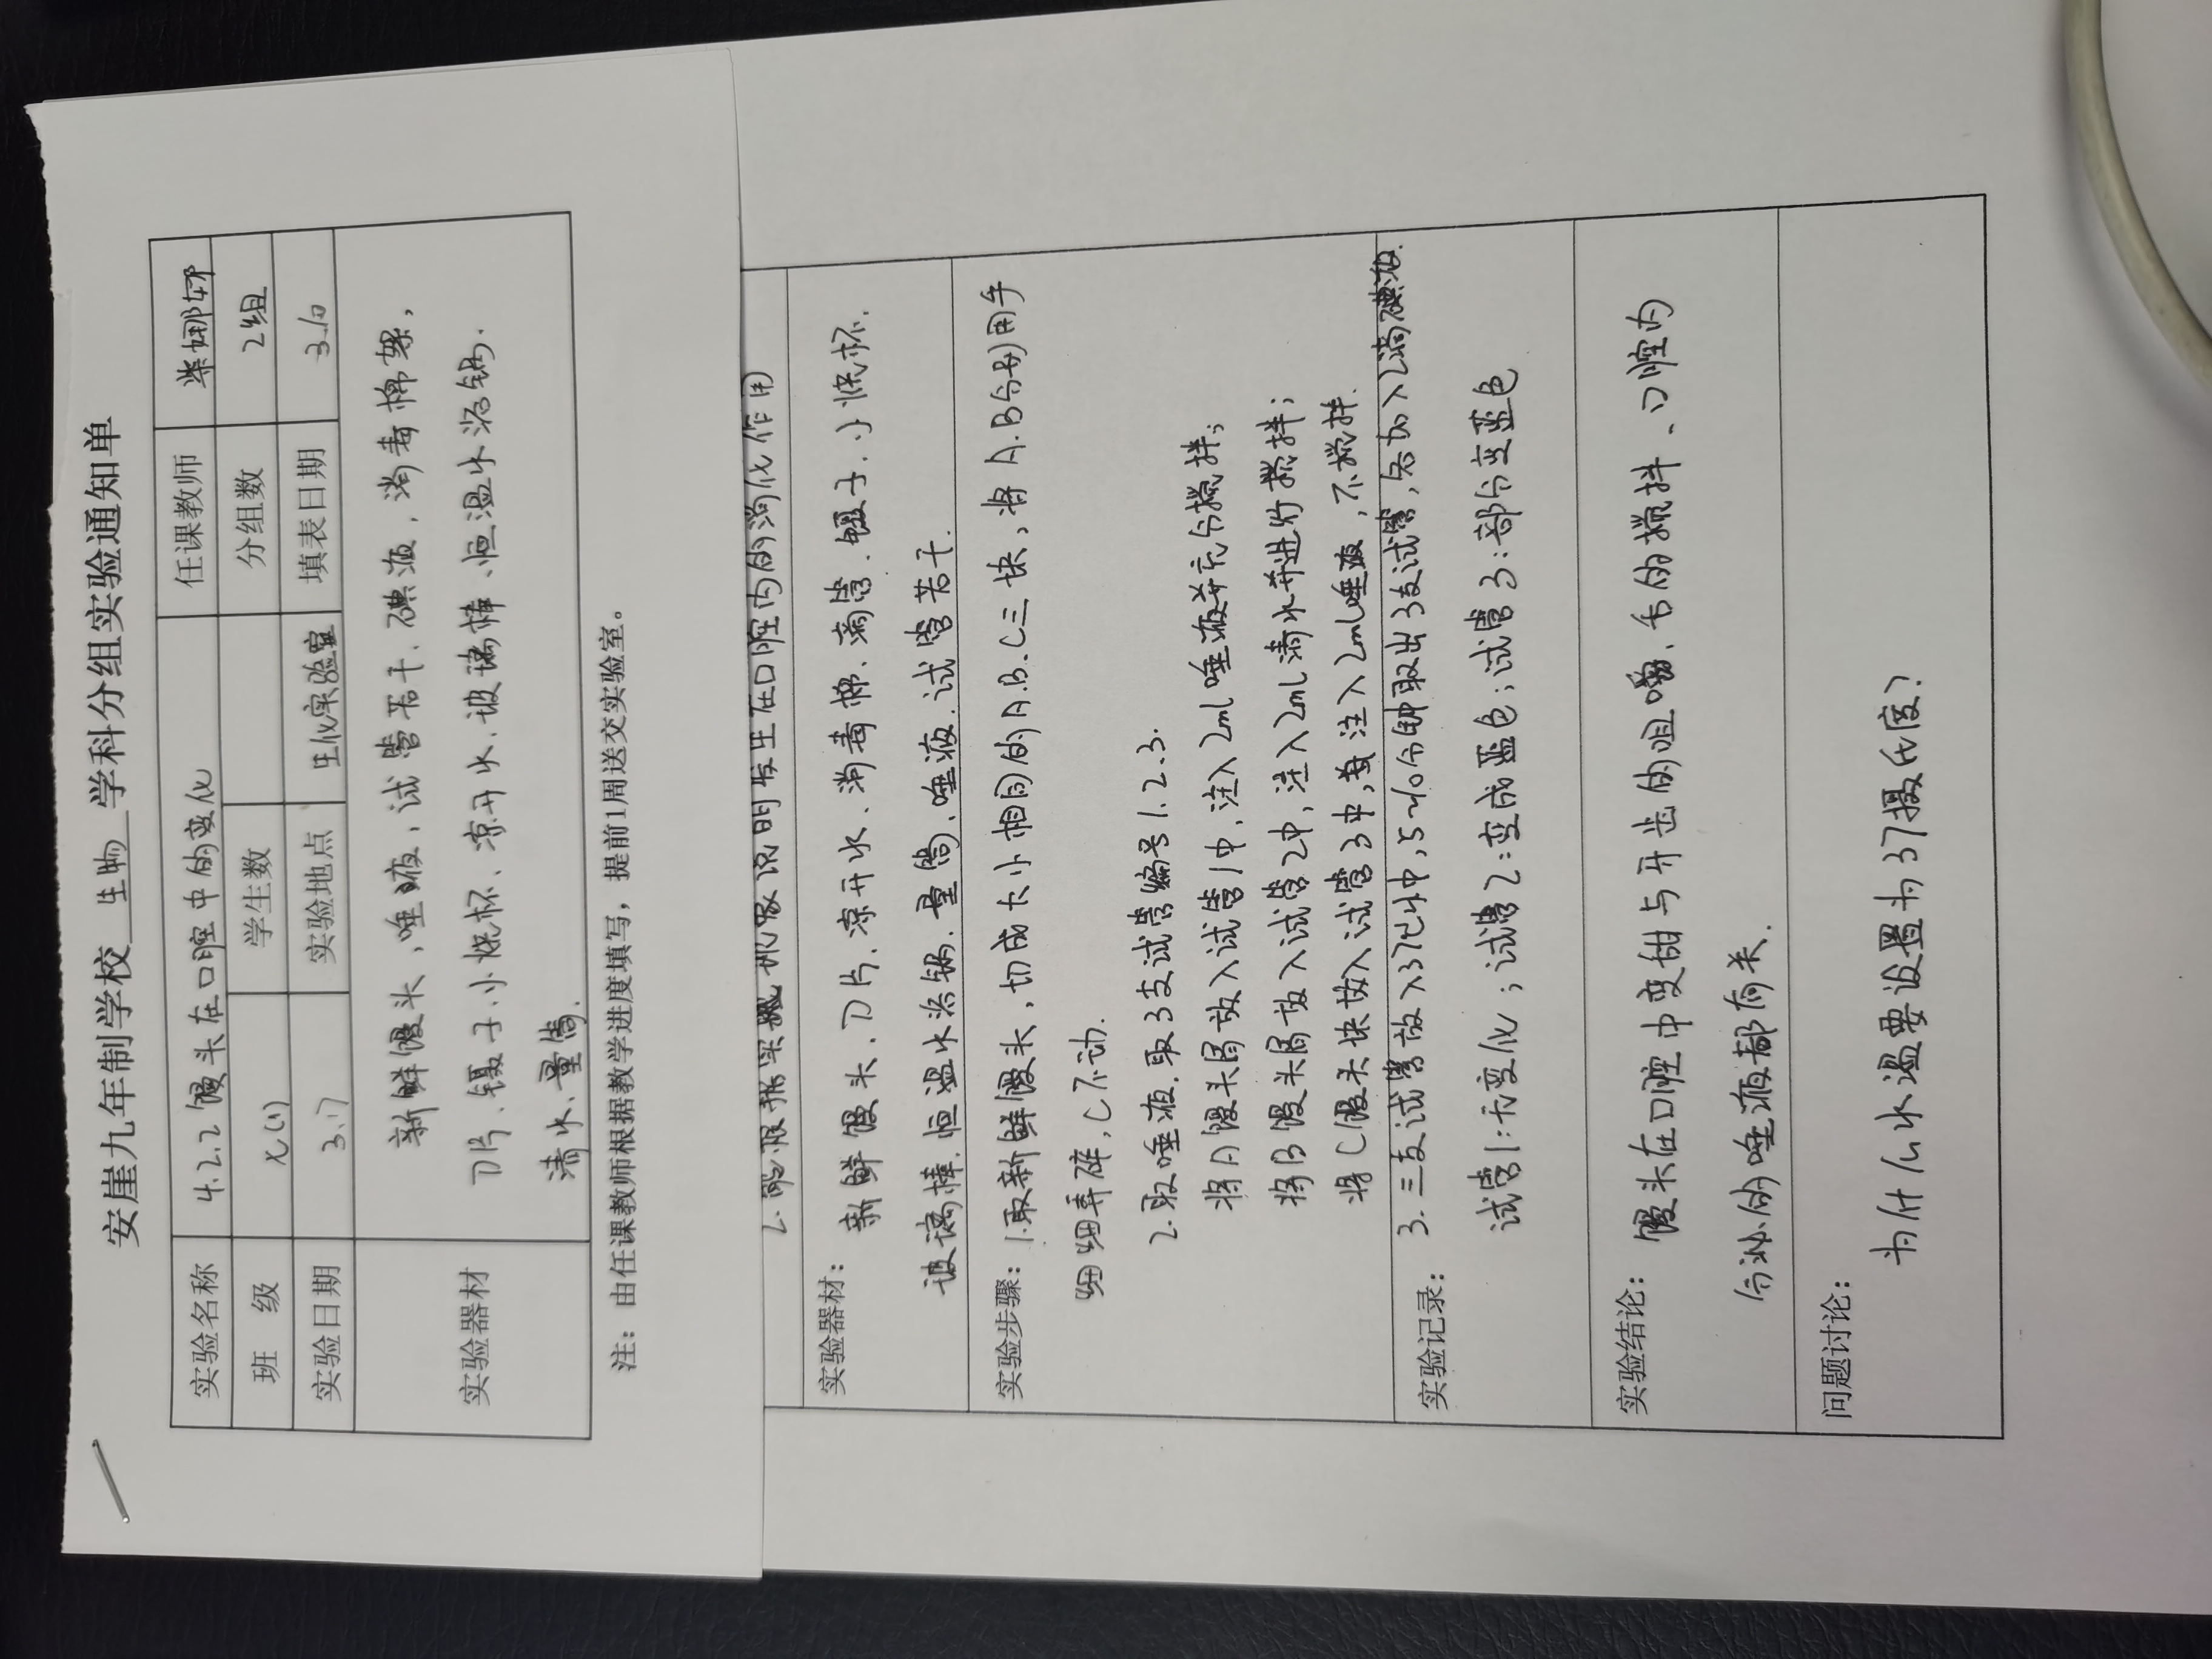 安崖九年制学校 生物 学科分组实验通知单
实验名称 4.2.2 馒头在口腔中的变化 任课教师 柴娜妍
班 级 七(1) 学生数 分组数 2组
实验日期 3.17 实验地点 生化实验室 填表日期 3.10
实验器材 新鲜馒头、唾液、试管若干、碘液、消毒棉絮、
刀片、镊子、小烧杯、凉开水、玻璃棒、恒温水浴锅、
清水、量筒.
注：由任课教师根据教学进度填写，提前1周送交实验室。
2.能根据实验现象说明发生在口腔内的消化作用
实验器材：新鲜馒头、刀片、凉开水、消毒棉、滴管、镊子、小烧杯.
玻璃棒、恒温水浴锅、量筒、唾液、试管若干.
实验步骤：1.取新鲜馒头，切成大小相同的A.B.C三块，将A.B分别用手
细细弄碎，C不动.
2.取唾液.取3支试管编号1.2.3.
将A馒头屑放入试管1中，注入2ml唾液并充分搅拌；
将B馒头屑放入试管2中，注入2ml清水并进行搅拌；
将C馒头块放入试管3中，注入2ml唾液，不搅拌.
3.三支试管放入37℃中，5~10分钟取出3支试管，各加入2滴碘液.
实验记录：
试管1：无变化；试管2：变成蓝色；试管3：部分变蓝色
实验结论：
馒头在口腔中变甜与牙齿的咀嚼、舌的搅拌、口腔内
分泌的唾液都有关.
问题讨论：
为什么水温要设置为37摄氏度？